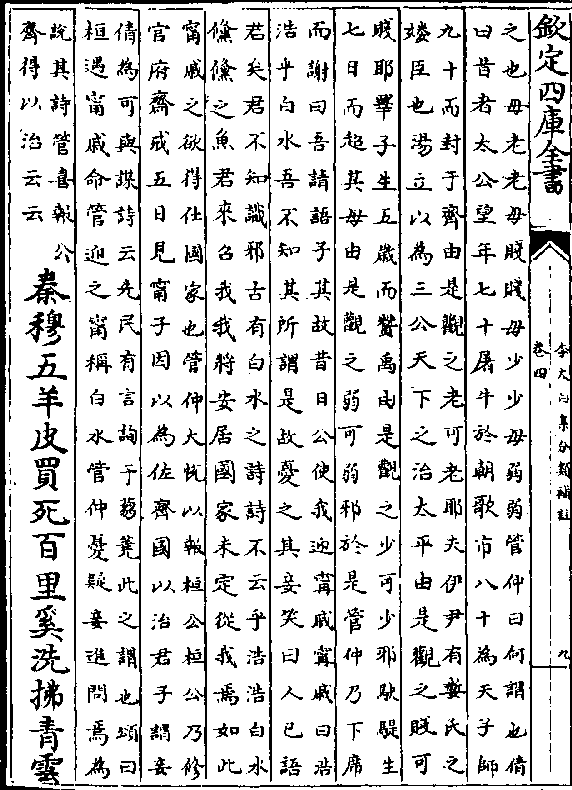 欽定四庫全書
李太白集分類補註
卷四
九
之也毋老老毋賤賤毋少少毋弱弱管仲曰何謂也倩
曰昔者太公望年七十屠牛於朝歌市八十為天子師
九十而封于齊由是觀之老可老耶夫伊尹有㜪氏之
媵臣也湯立以為三公天下之治太平由是觀之賤可
賤耶睪子生五歲而贊禹由是觀之少可少邪駃騠生
七日而超其母由是觀之弱可弱邪於是管仲乃下席
而謝曰吾請語子其故昔日公使我迎甯戚甯戚曰浩
浩乎白水吾不知其所謂是故憂之其妾笑曰人已語
君矣君不知識邪古有白水之詩詩不云乎浩浩白水
儵儵之魚君來召我我將安居國家未定從我焉如此
甯戚之欲得仕國家也管仲大悅以報桓公桓公乃修
官府齋戒五日見甯子因以為佐齊國以治君子謂妾
倩為可與謀詩云先民有言詢于芻蕘此之謂也頌曰
桓遇甯戚命管迎之甯稱白水管仲憂疑妾進問焉為
說其詩管喜報公
齊得以治云云
秦穆五羊皮買死百里奚洗拂青雲